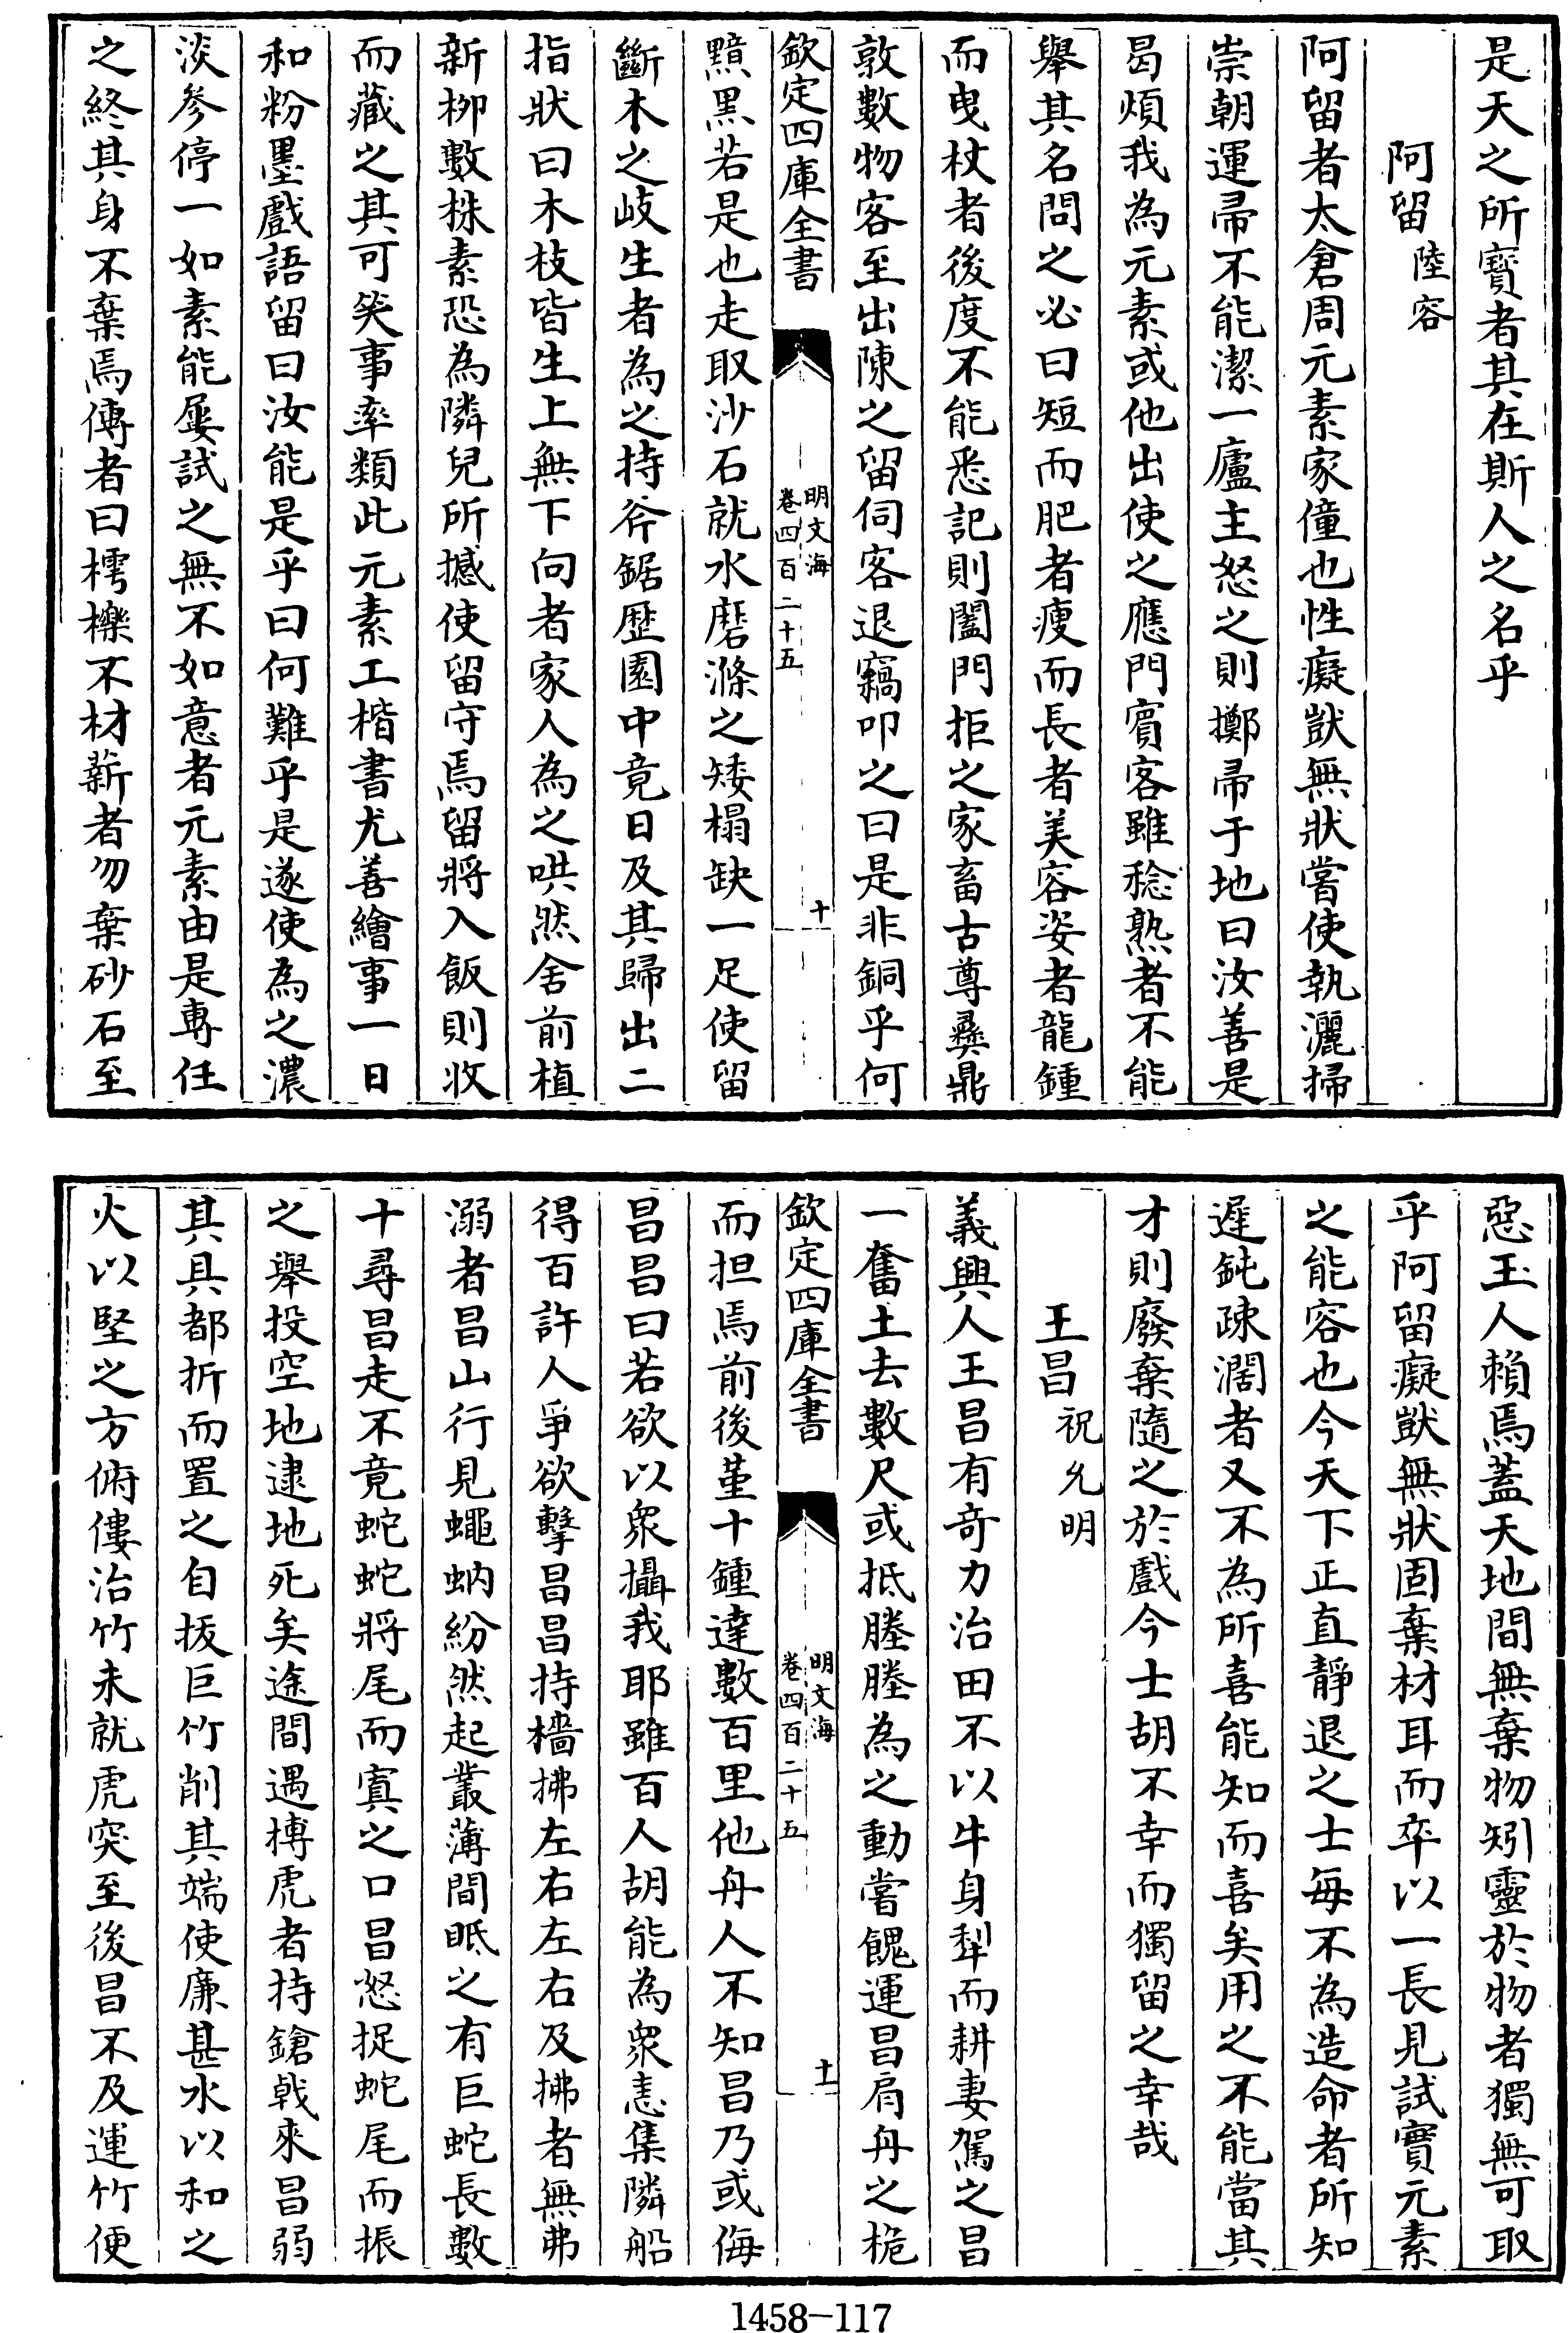 是天之所寳者其在斯人之名乎
阿留陸容
阿留者太倉周元素家僮也性癡獃無狀嘗使執灑掃
崇朝運帚不能潔一廬主怒之則擲帚于地曰汝善是
曷煩我為元素或他出使之應門賓客雖稔熟者不能
舉其名問之必曰短而肥者瘦而長者美容姿者龍鍾
而曳杖者後度不能悉記則闔門拒之家畜古尊彞鼎
敦數物客至出陳之留伺客退竊叩之曰是非銅乎何
欽定四庫全書
明文海
卷四百二十五
十
黯黒若是也走取沙石就水磨滌之矮榻缺一足使留
斷木之岐生者為之持斧鋸歴園中竟日及其歸出二
指狀曰木枝皆生上無下向者家人為之哄然舍前植
新栁數株素恐為隣兒所撼使留守焉留將入飯則收
而藏之其可笑事率類此元素工楷書尤善繪事一日
和粉墨戲語留曰汝能是乎曰何難乎是遂使為之濃
淡參停一如素能屢試之無不如意者元素由是專任
之終其身不棄焉傳者曰樗櫟不材薪者勿棄砂石至
惡玉人賴焉蓋天地間無棄物矧靈於物者獨無可取
乎阿留癡獃無狀固棄材耳而卒以一長見試實元素
之能容也今天下正直靜退之士每不為造命者所知
遲鈍疎濶者又不為所喜能知而喜矣用之不能當其
才則廢棄隨之於戲今士胡不幸而獨留之幸哉
王昌祝允明
義興人王昌有奇力治田不以牛身犁而耕妻駕之昌
一奮土去數尺或抵塍塍為之動嘗餽運昌肩舟之桅
欽定四庫全書
明文海
卷四百二十五
十一
而担焉前後堇十鍾達數百里他舟人不知昌乃或侮
昌昌曰若欲以衆攝我耶雖百人胡能為衆恚集隣船
得百許人爭欲擊昌昌持檣拂左右左右及拂者無弗
溺者昌山行見蠅蚋紛然起叢薄間眂之有巨蛇長數
十尋昌走不竟蛇蛇將尾而寘之口昌怒捉蛇尾而振
之舉投空地逮地死矣途間遇搏虎者持鎗戟來昌弱
其具都折而置之自拔巨竹削其端使廉甚水以和之
火以堅之方俯僂治竹未就虎突至後昌不及運竹便
1458-117